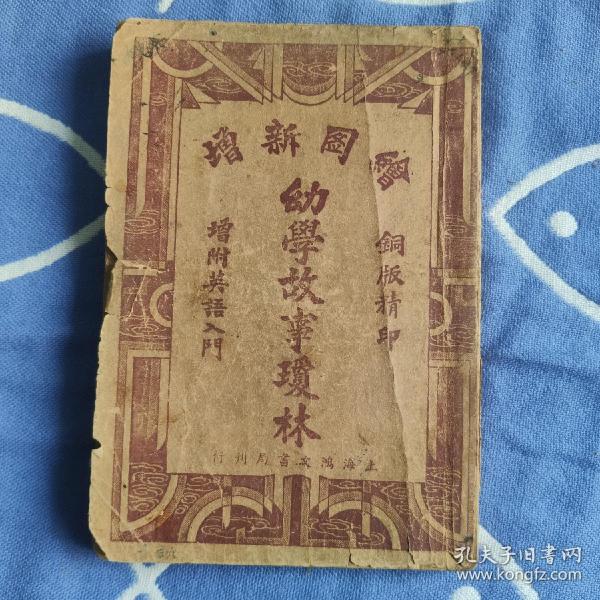 繪圖新增
銅版精印
幼學故事瓊林
增附英語入門
上海鴻文書局刊行
孔夫子旧书网
www.kongfz.com